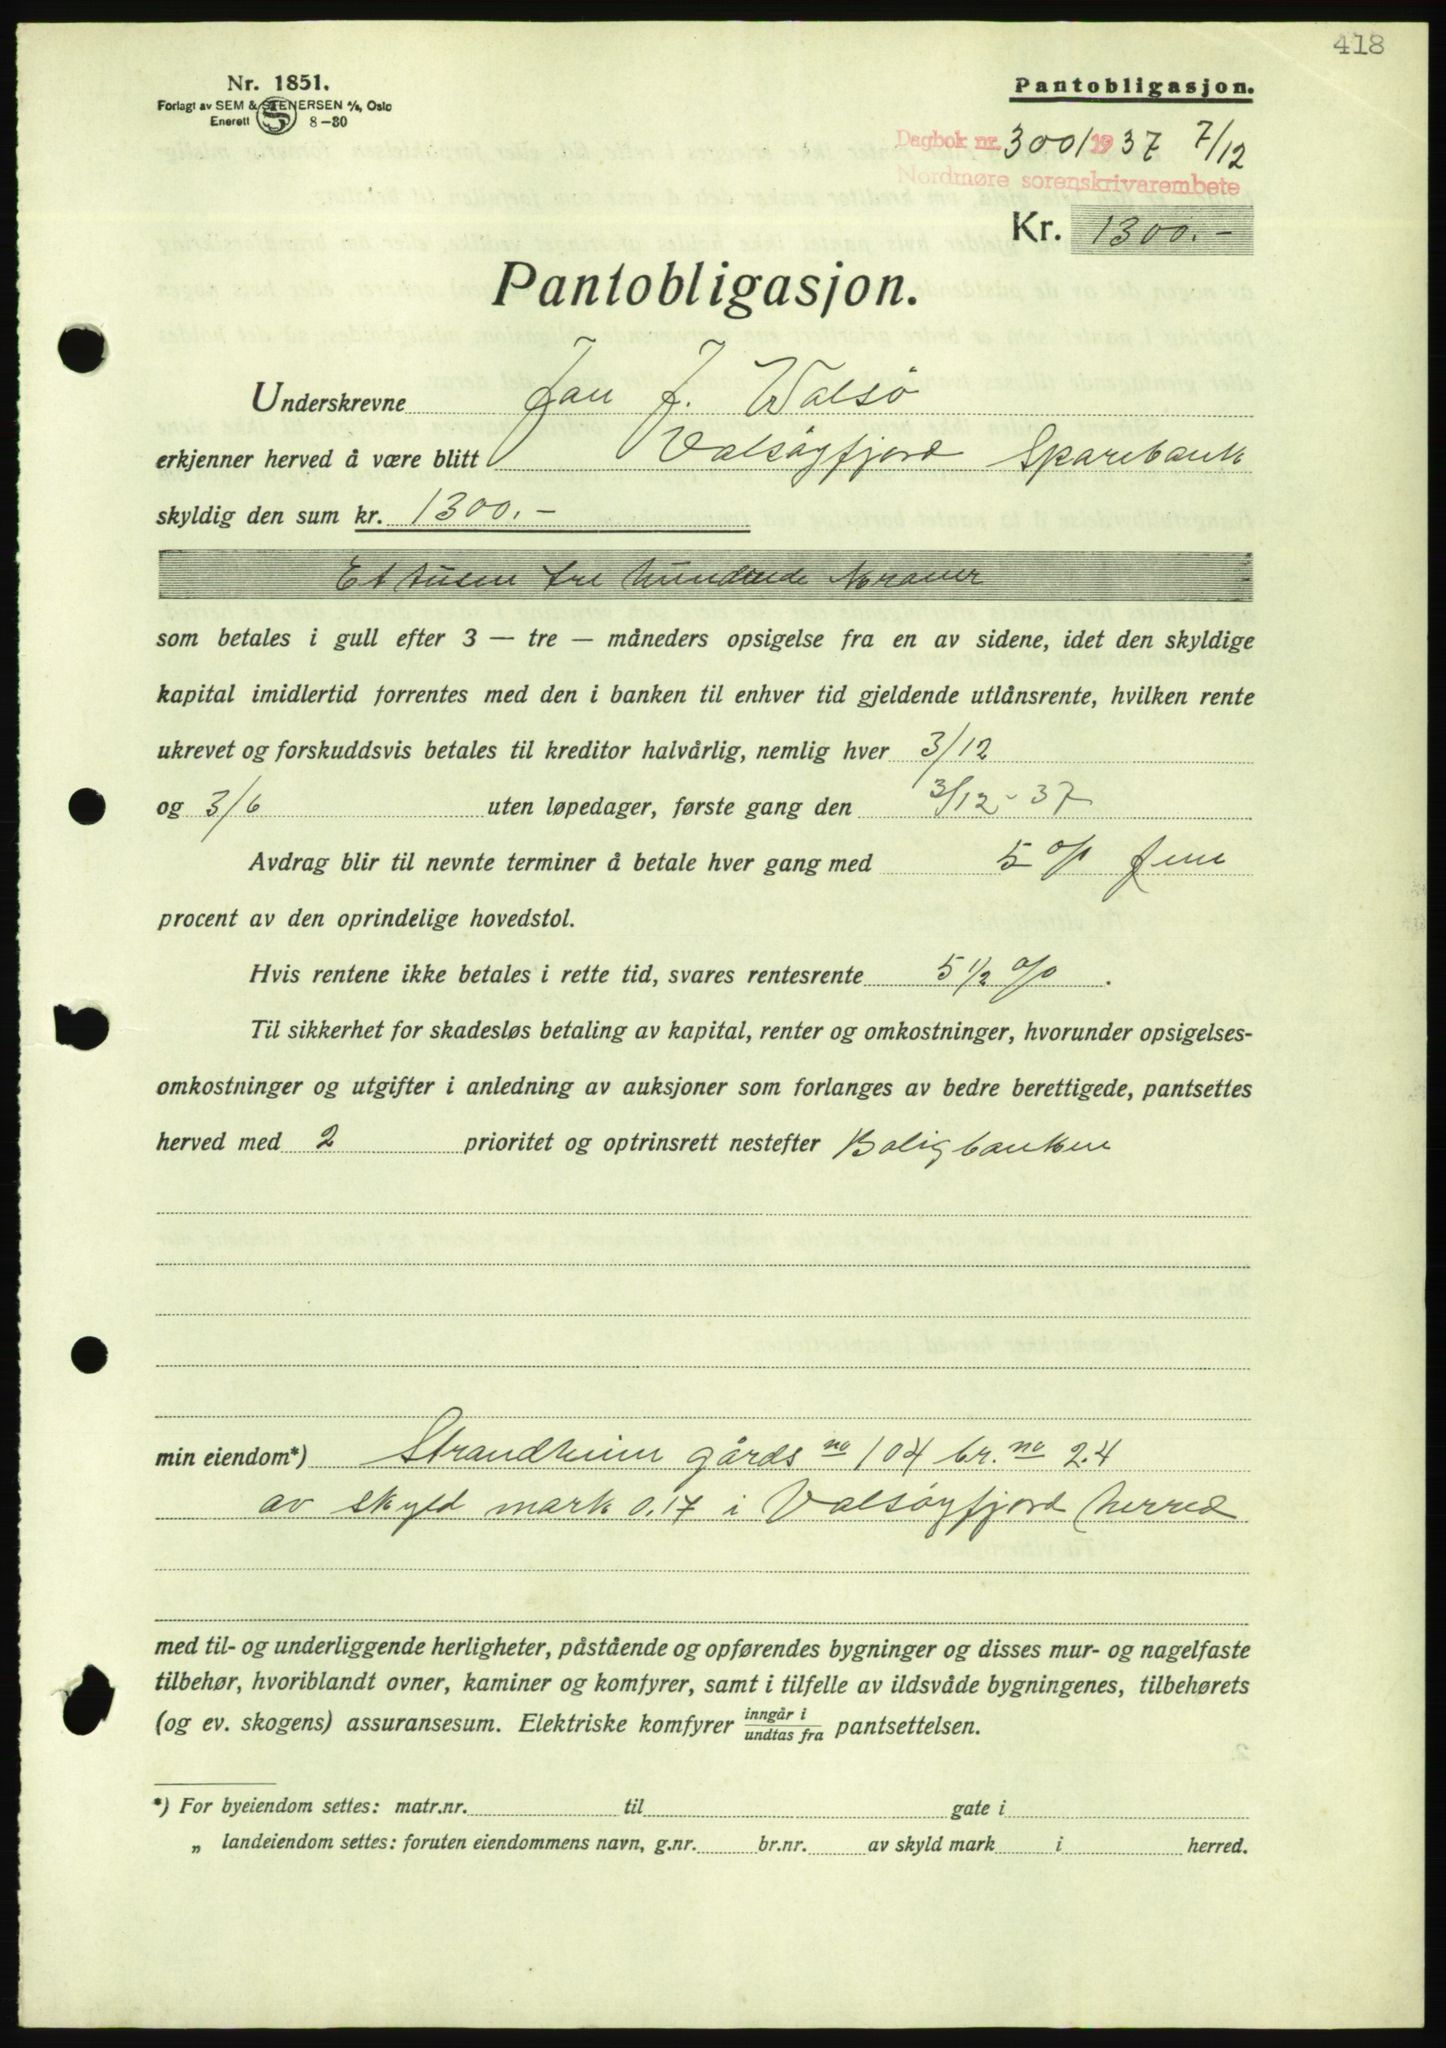 418
Nr. 1851.
Forlagt av SEM & STENERSEN A/S, Oslo
Enerett S 8-30
Pantobligasjon.
Dagbok nr. 3001 1937 7/12
Nordmøre sorenskrivarembete
Kr. 1300.-
Pantobligasjon.
Underskrevne Jan J. Walsö
erkjenner herved å være blitt Valsöyfjord Sparebank
skyldig den sum kr. 1300.-
Et tusen tre hundrede kroner
som betales i gull efter 3 — tre — måneders opsigelse fra en av sidene, idet den skyldige
kapital imidlertid forrentes med den i banken til enhver tid gjeldende utlånsrente, hvilken rente
ukrevet og forskuddsvis betales til kreditor halvårlig, nemlig hver 3/12
og 3/6 uten løpedager, første gang den 3/12-37
Avdrag blir til nevnte terminer å betale hver gang med 5 % fem
procent av den oprindelige hovedstol.
Hvis rentene ikke betales i rette tid, svares rentesrente 5 1/2 %.
Til sikkerhet for skadesløs betaling av kapital, renter og omkostninger, hvorunder opsigelses-
omkostninger og utgifter i anledning av auksjoner som forlanges av bedre berettigede, pantsettes
herved med 2 prioritet og optrinsrett nestefter Boligbanken
min eiendom*) Strandheim gårds no 104 br. no 24
av skyld mark 0.17 i Valsöyfjord herred
med til- og underliggende herligheter, påstående og opførendes bygninger og disses mur- og nagelfaste
tilbehør, hvoriblandt ovner, kaminer og komfyrer, samt i tilfelle av ildsvåde bygningenes, tilbehørets
(og ev. skogens) assuransesum. Elektriske komfyrer inngår i / undtas fra pantsettelsen.
*) For byeiendom settes: matr.nr. til gate i
„ landeiendom settes: foruten eiendommens navn, g.nr. br.nr. av skyld mark i herred.